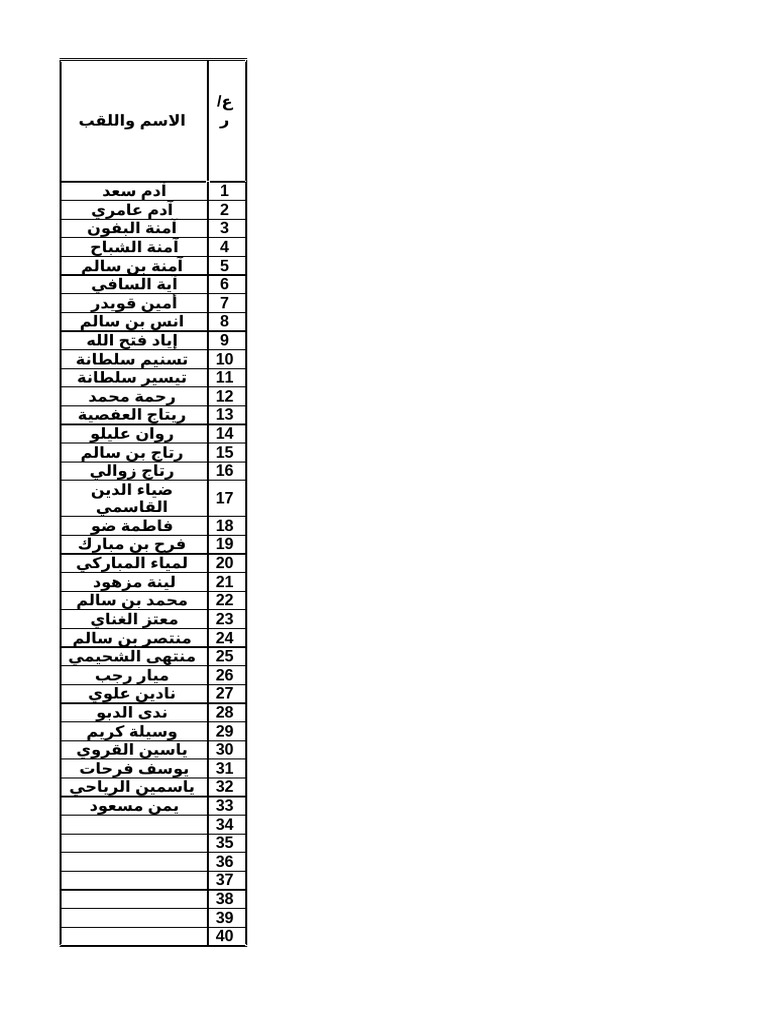 ع/ر الاسم واللقب
1 آدم سعد
2 آدم عامري
3 آمنة البفون
4 آمنة الشباح
5 آمنة بن سالم
6 آية السافي
7 أمين قويدر
8 انس بن سالم
9 إياد فتح الله
10 تسنيم سلطانة
11 تيسير سلطانة
12 رحمة محمد
13 ريتاج العفصية
14 روان عليلو
15 رتاج بن سالم
16 رتاج زوالي
17 ضياء الدين
القاسمي
18 فاطمة ضو
19 فرح بن مبارك
20 لمياء المباركي
21 لينة مزهود
22 محمد بن سالم
23 معتز الغناي
24 منتصر بن سالم
25 منتهى الشحيمي
26 ميار رجب
27 نادين علوي
28 ندى الدبو
29 وسيلة كريم
30 ياسين القروي
31 يوسف فرحات
32 ياسمين الرياحي
33 يمن مسعود
34
35
36
37
38
39
40